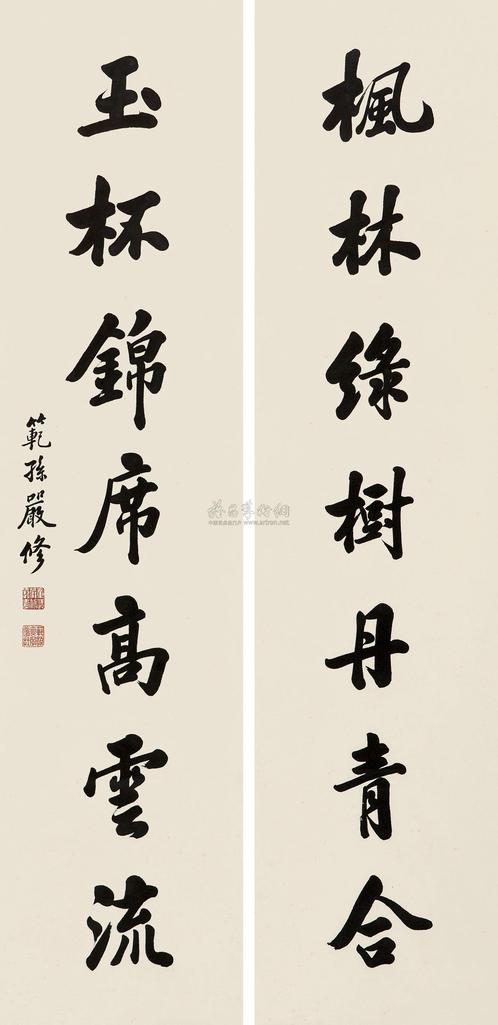 楓林綠樹丹青合
玉杯錦席高雲流
範孫嚴修
www.artron.net